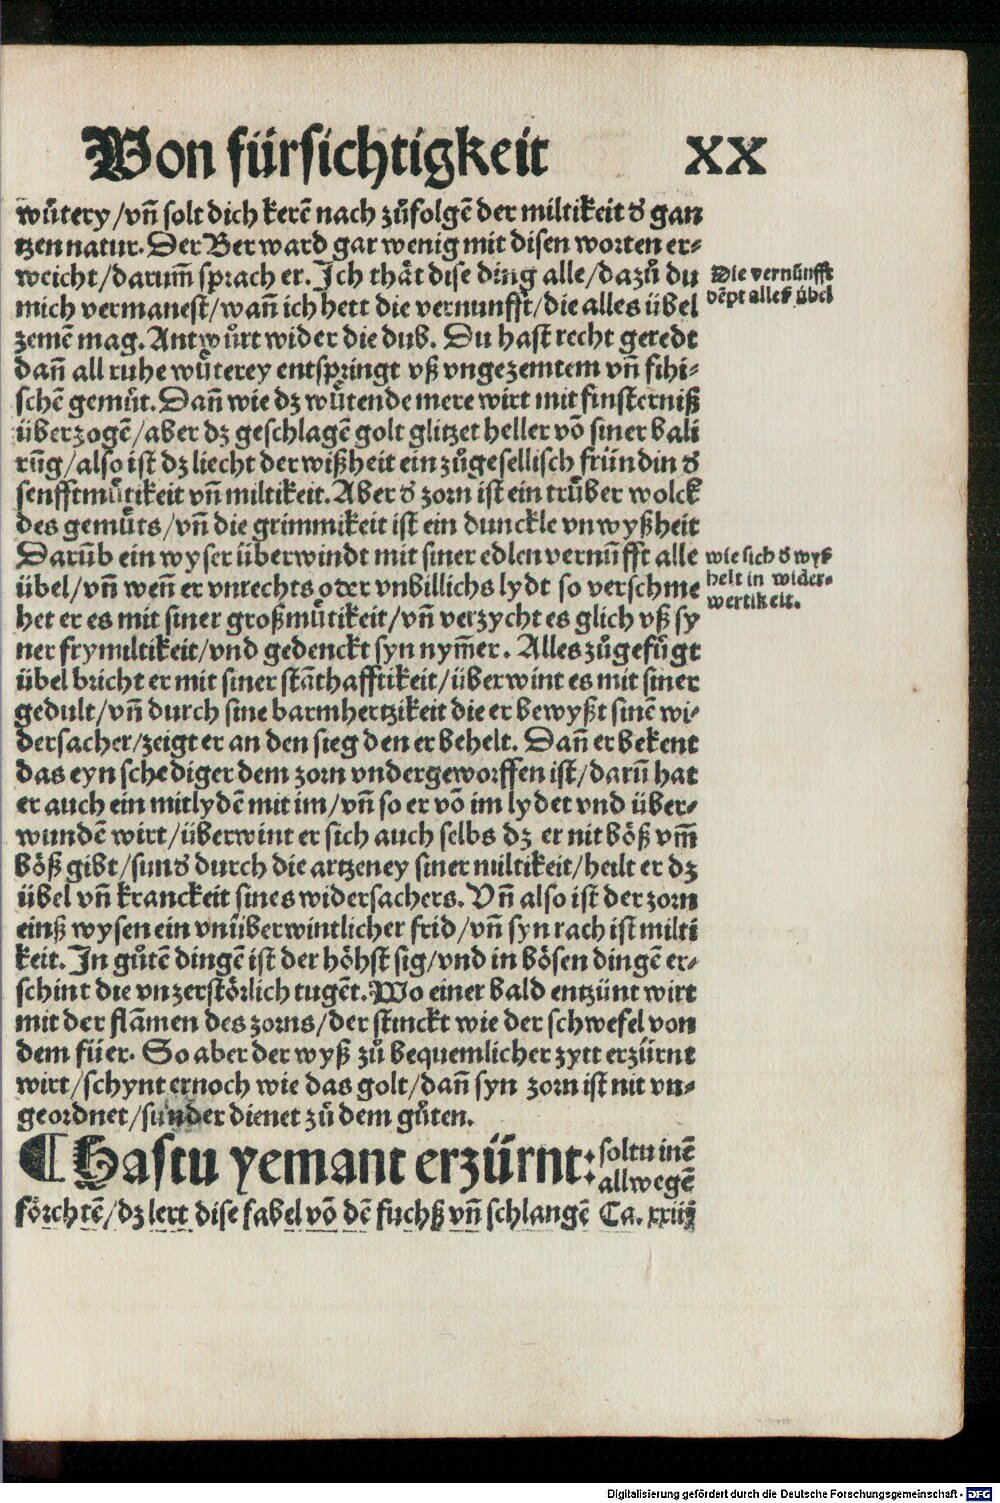 Von fürsichtigkeit XX
wuͤtery/vñ solt dich kerẽ nach zuͦfolgẽ der miltikeit d̕ gan
tzen natur. Der Ber ward gar wenig mit disen worten er-
weicht/darum̃ sprach er. Ich thaͤt dise ding alle/dazuͦ du
mich vermanest/wañ ich hett die vernunfft/die alles übel
zemẽ mag. Antwuͤrt wider die dub. Du hast recht geredt
dañ all ruhe wuͤterey entspringt vß vngezemtem vñ fihi-
schẽ gemuͤt. Dañ wie dz wuͤtende mere wirt mit finsterniß
überzogẽ/aber dz geschlagẽ golt glitzet heller võ siner bali
rũg/also ist dz liecht der wißheit ein zuͦgesellisch fründin d̕
senfftmuͤtikeit vñ miltikeit. Aber d̕ zorn ist ein truͤber wolck
des gemuͤts/vñ die grimmikeit ist ein dunckle vnwyßheit
Darũb ein wyser überwindt mit siner edlen vernũfft alle
übel/vñ weñ er vnrechts oder vnbillichs lydt so verschme
het er es mit siner großmuͤtikeit/vñ verzycht es glich vß sy
ner frymiltikeit/vnd gedenckt syn nym̃er. Alles zuͦgefuͤgt
übel bricht er mit siner stãthafftikeit/überwint es mit siner
gedult/vñ durch sine barmhertzikeit die er bewyßt sinẽ wi-
dersacher/zeigt er an den sieg den er behelt. Dañ er bekent
das eyn schediger dem zorn vndergeworffen ist/darũ hat
er auch ein mitlydẽ mit im/vñ so er võ im lydet vnd über-
wundẽ wirt/überwint er sich auch selbs dz er nit böß vm̃
böß gibt/sund̕ durch die artzeney siner miltikeit/heilt er dz
übel vñ kranckeit sines widersachers. Vñ also ist der zorn
einß wysen ein vnüberwintlicher frid/vñ syn rach ist milti
keit. In guͦtẽ dingẽ ist der höhst sig/vnd in bösen dingẽ er-
schint die vnzerstörlich tugẽt. Wo einer bald entzünt wirt
mit der flãmen des zorns/der stinckt wie der schwefel von
dem füer. So aber der wyß zuͦ bequemlicher zytt erzürnt
wirt/schynt er noch wie das golt/dañ syn zorn ist nit vn-
geordnet/sunder dienet zuͦ dem guͦten.
Die vernũnfft
dẽpt alles übel
wie sich d̕ wyß
helt in wider-
wertikeit.
¶Hastu yemant erzürnt: soltu inẽ
allwegẽ
förchtẽ/dz lert dise fabel võ dẽ fuchß vñ schlangẽ Ca. xxiij
Digitalisierung gefördert durch die Deutsche Forschungsgemeinschaft - DFG